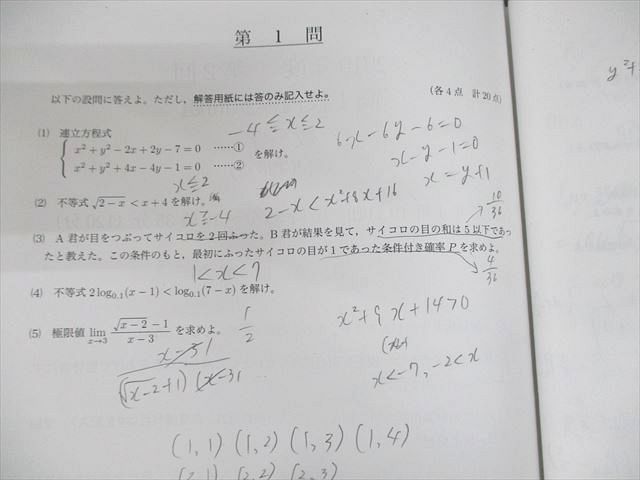 第 1 問
以下の設問に答えよ。ただし，解答用紙には答のみ記入せよ。 (各4点 計20点)
(1) 連立方程式
-4≦x≦2
x²+y²-2x+2y-7=0 ……①
x²+y²+4x-4y-1=0 ……②
を解け。
6x-6y-6=0
x-y-1=0
x=y+1
x≦2
(2) 不等式 √(2-x) < x+4 を解け。
x≧-4
2-x<x²+8x+16
10/36
(3) A君が目をつぶってサイコロを2回ふった。B君が結果を見て，サイコロの目の和は5以下であっ
たと教えた。この条件のもと，最初にふったサイコロの目が1であった条件付き確率Pを求めよ。
4/36
1<x<7
(4) 不等式 2log₀.₁(x-1) < log₀.₁(7-x) を解け。
x²+9x+14>0
x<-7, -2<x
(5) 極限値 lim x→3 (√(x-2)-1)/(x-3) を求めよ。
1/2
x-31
(√x-2+1)(x-31
(1,1) (1,2) (1,3) (1,4)
(2,1) (2,2) (2,3)
y²+